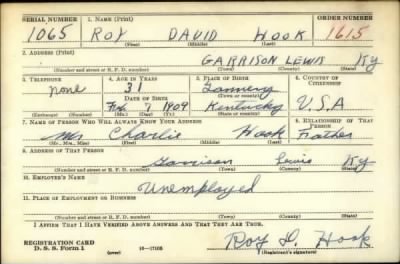 SERIAL NUMBER 1. NAME (Print) ORDER NUMBER
1065 ROY DAVID HOOK 1615
(First) (Middle) (Last)
2. ADDRESS (Print)
GARRISON LEWIS Ky
(Number and street or R. F. D. number) (Town) (County) (State)
3. TELEPHONE 4. AGE IN YEARS 5. PLACE OF BIRTH 6. COUNTRY OF CITIZENSHIP
none 31
DATE OF BIRTH (Town or county)
Feb 7 1909 Kentucky U.S.A
(Exchange) (Number) (Mo.) (Day) (Yr.) (State or country)
7. NAME OF PERSON WHO WILL ALWAYS KNOW YOUR ADDRESS 8. RELATIONSHIP OF THAT PERSON
Mr Charlie Hook Father
(Mr., Mrs., Miss) (First) (Middle) (Last)
9. ADDRESS OF THAT PERSON
Garrison Lewis Ky
(Number and street or R. F. D. number) (Town) (County) (State)
10. EMPLOYER'S NAME
Unemployed
11. PLACE OF EMPLOYMENT OR BUSINESS
(Number and street or R. F. D. number) (Town) (County) (State)
I AFFIRM THAT I HAVE VERIFIED ABOVE ANSWERS AND THAT THEY ARE TRUE.
REGISTRATION CARD
D. S. S. Form 1 (over) Roy D. Hook
(Registrant's signature)